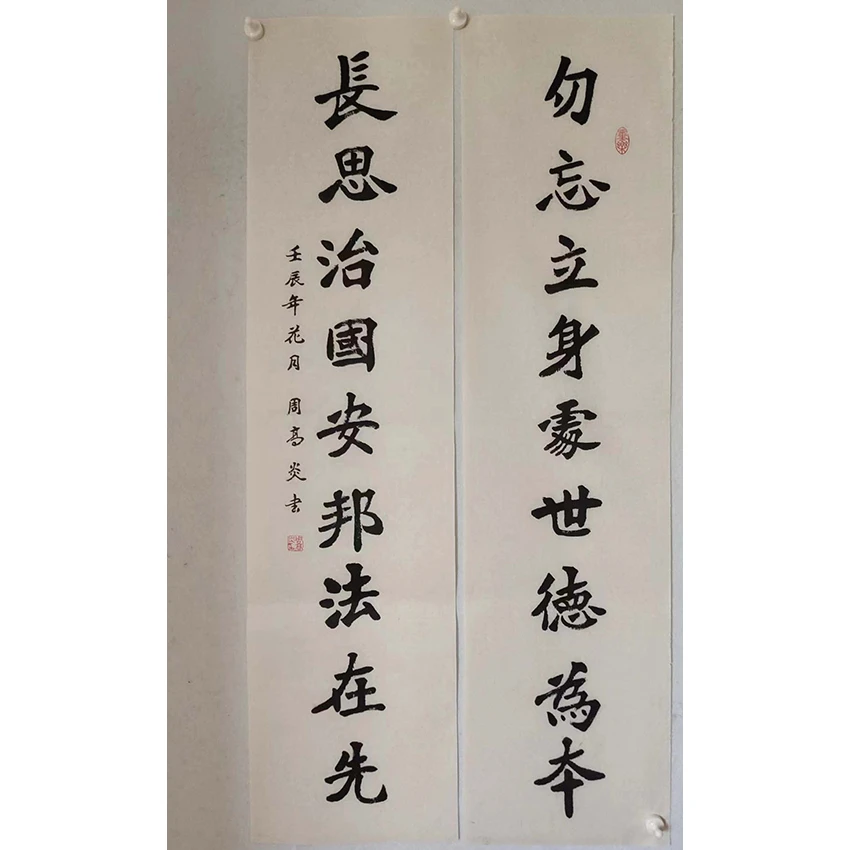 勿忘立身處世德為本
長思治國安邦法在先
壬辰年花月 周高炎书